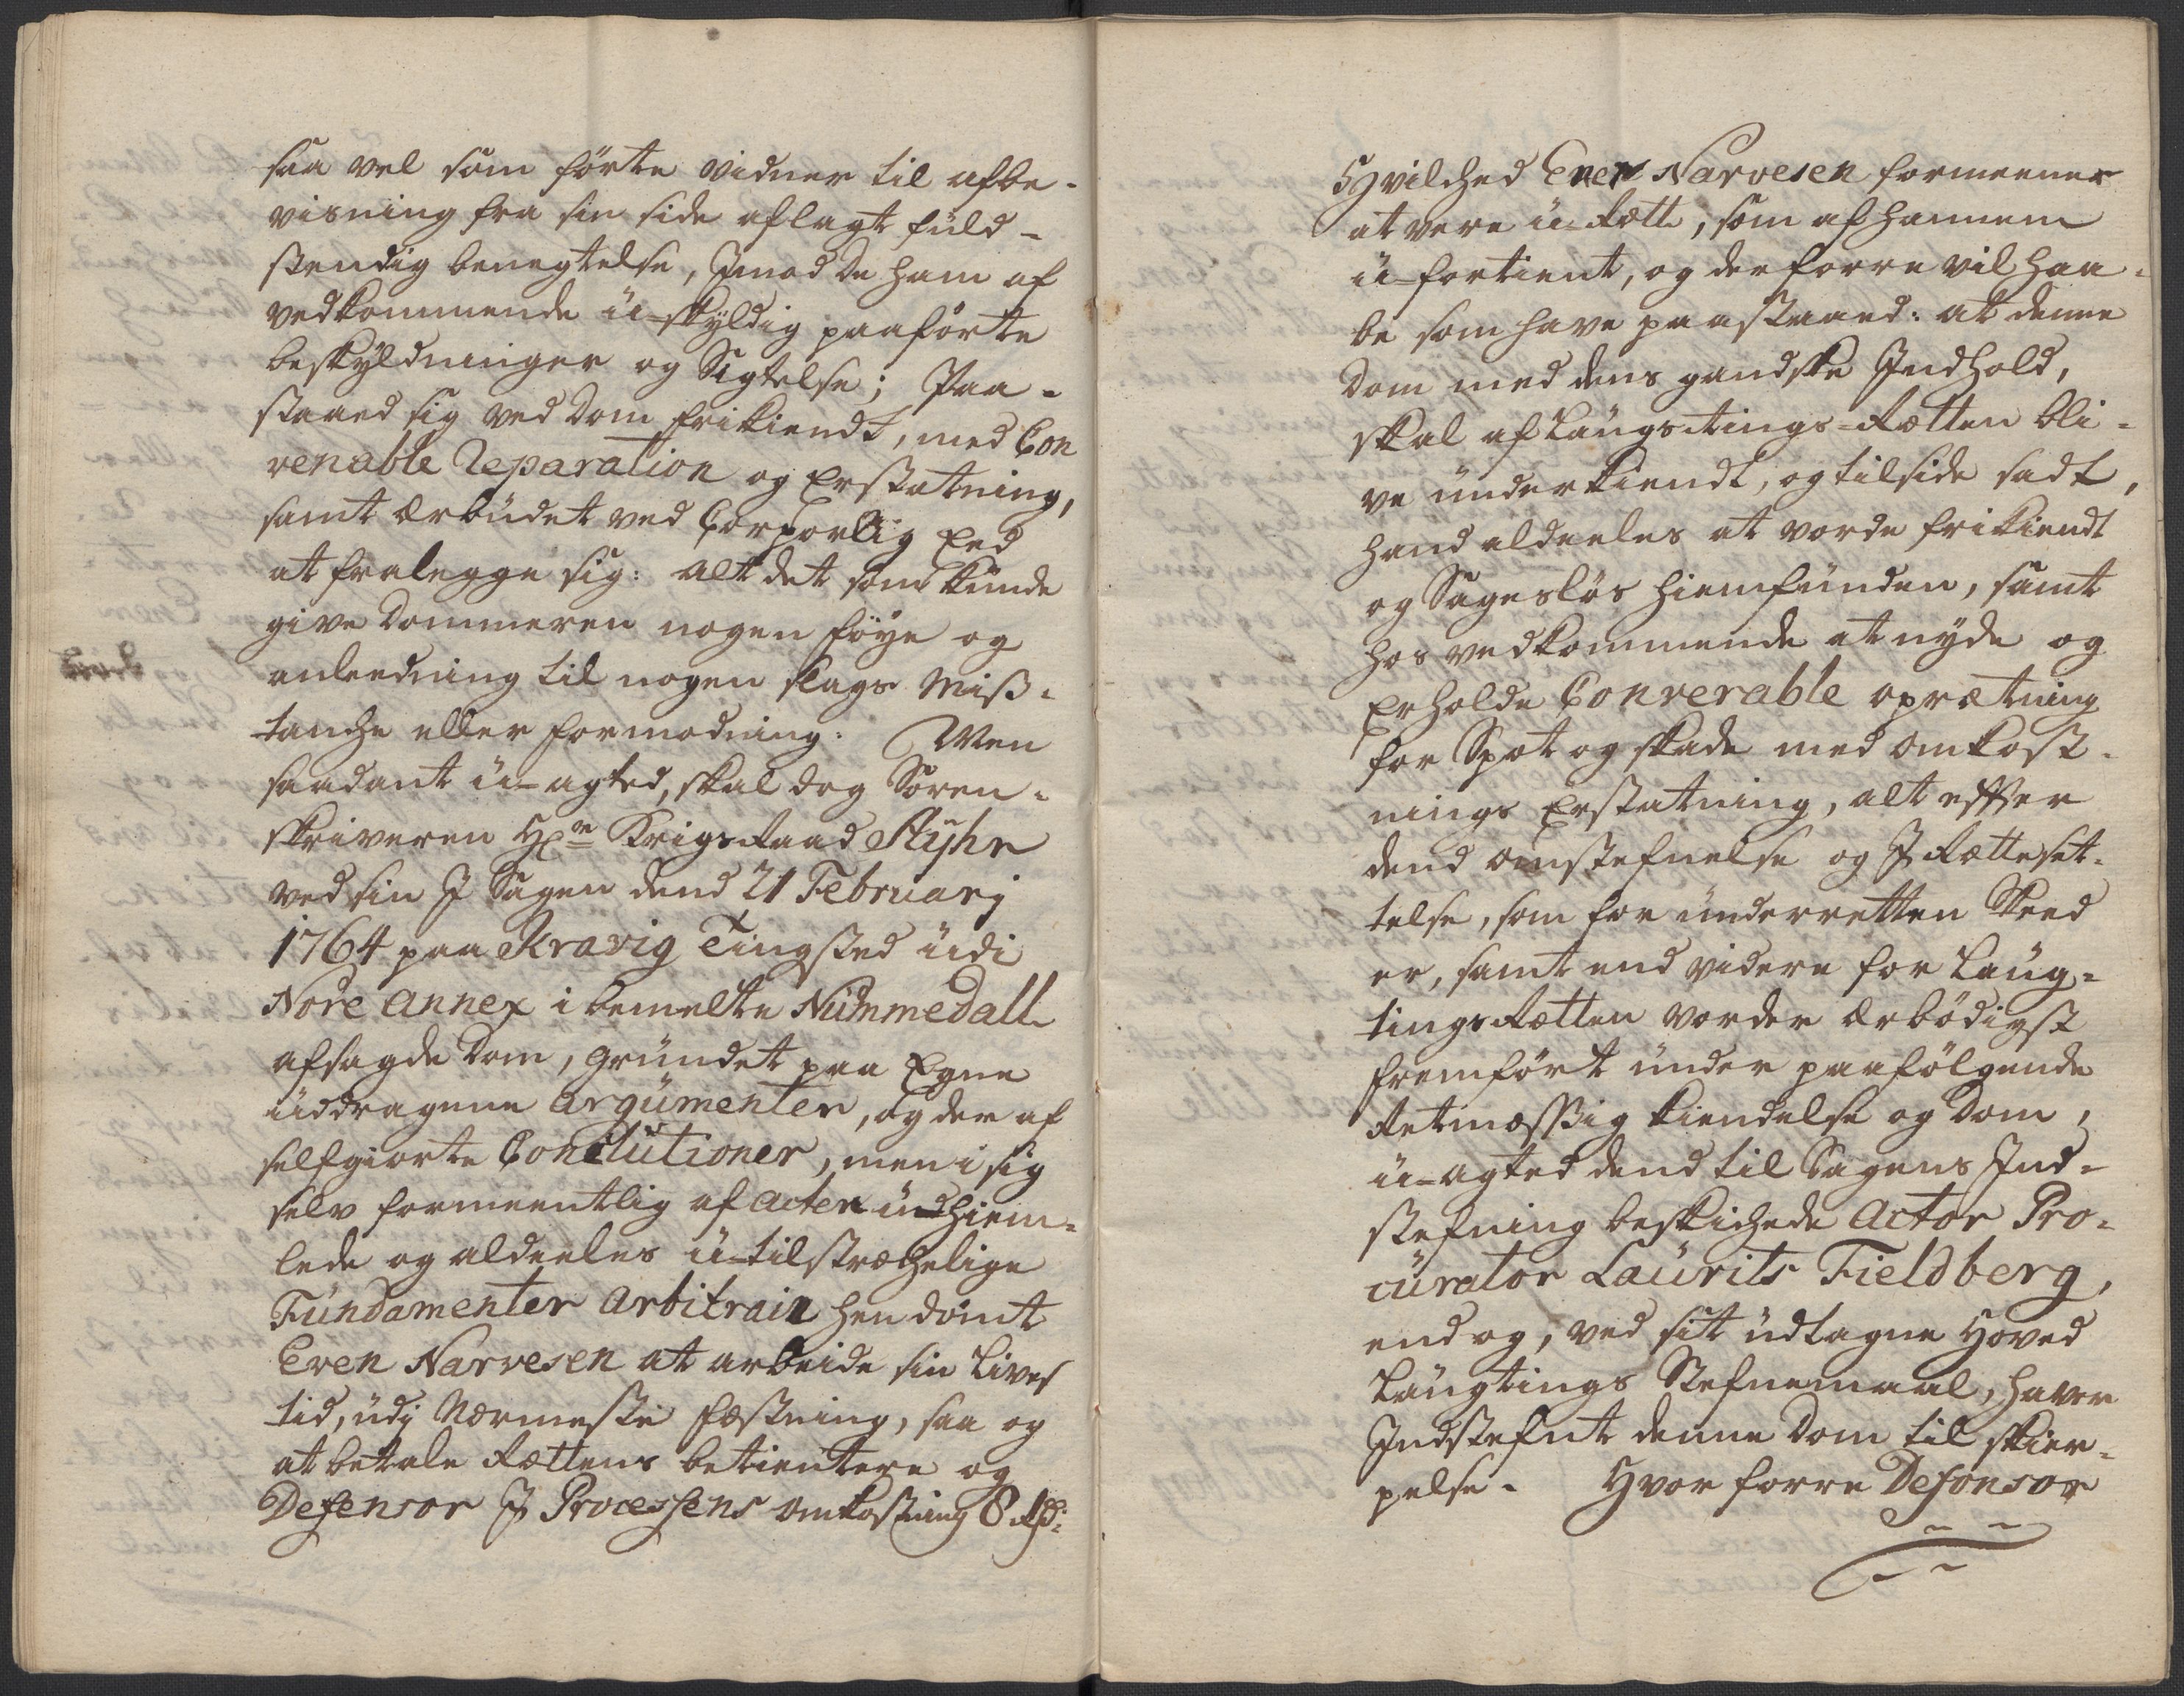 saa vel som førte vidner til afbe-
visning fra sin side aflagt fuld-
stendig benegtelse, Jmod de ham af
vedkommende u-skyldig paaførte
beskyldninger og Sigtelse; Paa-
staaed sig ved Dom frikiendt, med Con
venable Reparation og Erstatning,
samt ærbudet ved Corporlig Eed
at fralegge sig: alt det som kunde
give Dommeren nogen føye og
anleedning til nogen slags Miß-
tanche eller formodning. Men
saadant u-agted, skal dog Soren-
skriveren Hr Krigs Raad Styhr
ved sin J Sagen dend 21 Februarj
1764 paa Kravig Tingsted udi
Nore annex i bemelte Nummedall
afsagde Dom, gründet paa Egne
uddragene Argumenter, og der af
selfgiorte Conclutioner, men i sig
selv formeentlig af acten uudhiem-
lede og aldeeles u-tilstrækelige
Fundamenter Arbitrair hen dømt
Even Narvesen at arbeide sin Lives
tid, udj Nærmeste fæstning, saa og
at betale Rættens betientere og
Defensor J Processens omkostning 8 rd:
Hvilched Even Narvesen formeener
at vere u-Rætt, som af hannem
u-fortient, og derforre vil haa-
be som have paastaaed: at denne
Dom med dens gandske Indhold,
skal af Laugtings-Rætten bli-
ve underkiendt, og tilside sadt,
hand aldeeles at vorde frikiendt
og Sagesløs hiemfunden, samt
hos vedkommende at nyde og
Erholde Convenable oprætning
for Spot og skade med omkost-
nings Erstatning, alt effter
dend omstefnelse og J Rætteset-
telse, som for underretten Skeed
er, samt end videre for Laug-
tingsRætten vorder ærbødigst
fremført under paafølgende
Retmæssig kiendelse og Dom,
u-agted dend til Sagens Ind-
stefning beskichede Actor Pro-
curator Laurits Fieldberg,
end og, ved sit udtagne Hoved
Laugtings Stefnemaal, haver
Indstefnt denne Dom til skier-
pelse. Hvor forre Defensor